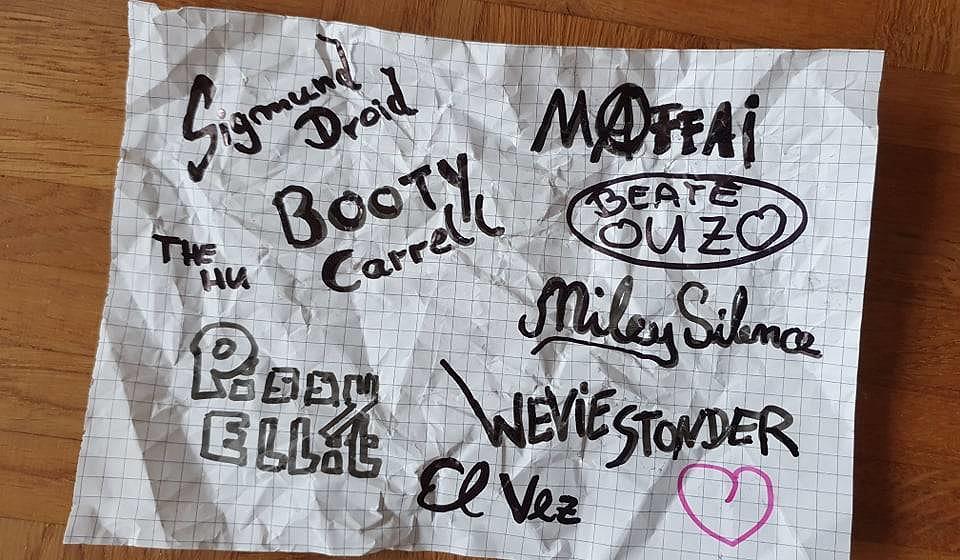 Sigmund
Droid
BOOTY
Carrell
THE
HU
MAFFAI
BEATE
OUZO
Miley Silence
WEVIE STONDER
El Vez